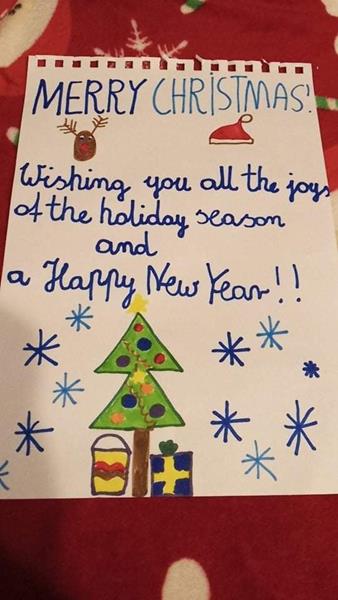 MERRY CHRISTMAS!
Wishing you all the joys
of the holiday season
and
a Happy New Year!!